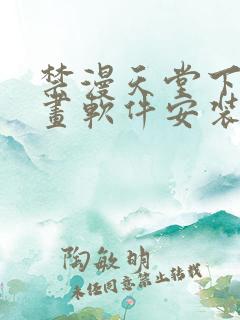 禁漫天堂下
畫軟件安裝
陶敏明
未经同意禁止转载